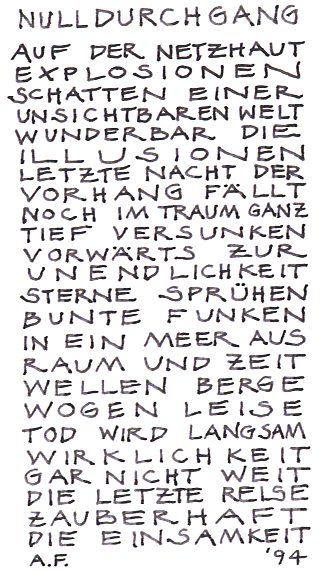 NULLDURCHGANG
AUF DER NETZHAUT
EXPLOSIONEN
SCHATTEN EINER
UNSICHTBAREN WELT
WUNDERBAR DIE
ILLUSIONEN
LETZTE NACHT DER
VORHANG FÄLLT
NOCH IM TRAUM GANZ
TIEF VERSUNKEN
VORWÄRTS ZUR
UNENDLICHKEIT
STERNE SPRÜHEN
BUNTE FUNKEN
IN EIN MEER AUS
RAUM UND ZEIT
WELLEN BERGE
WOGEN LEISE
TOD WIRD LANGSAM
WIRKLICHKEIT
GAR NICHT WEIT
DIE LETZTE REISE
ZAUBERHAFT
DIE EINSAMKEIT
A.F. '94